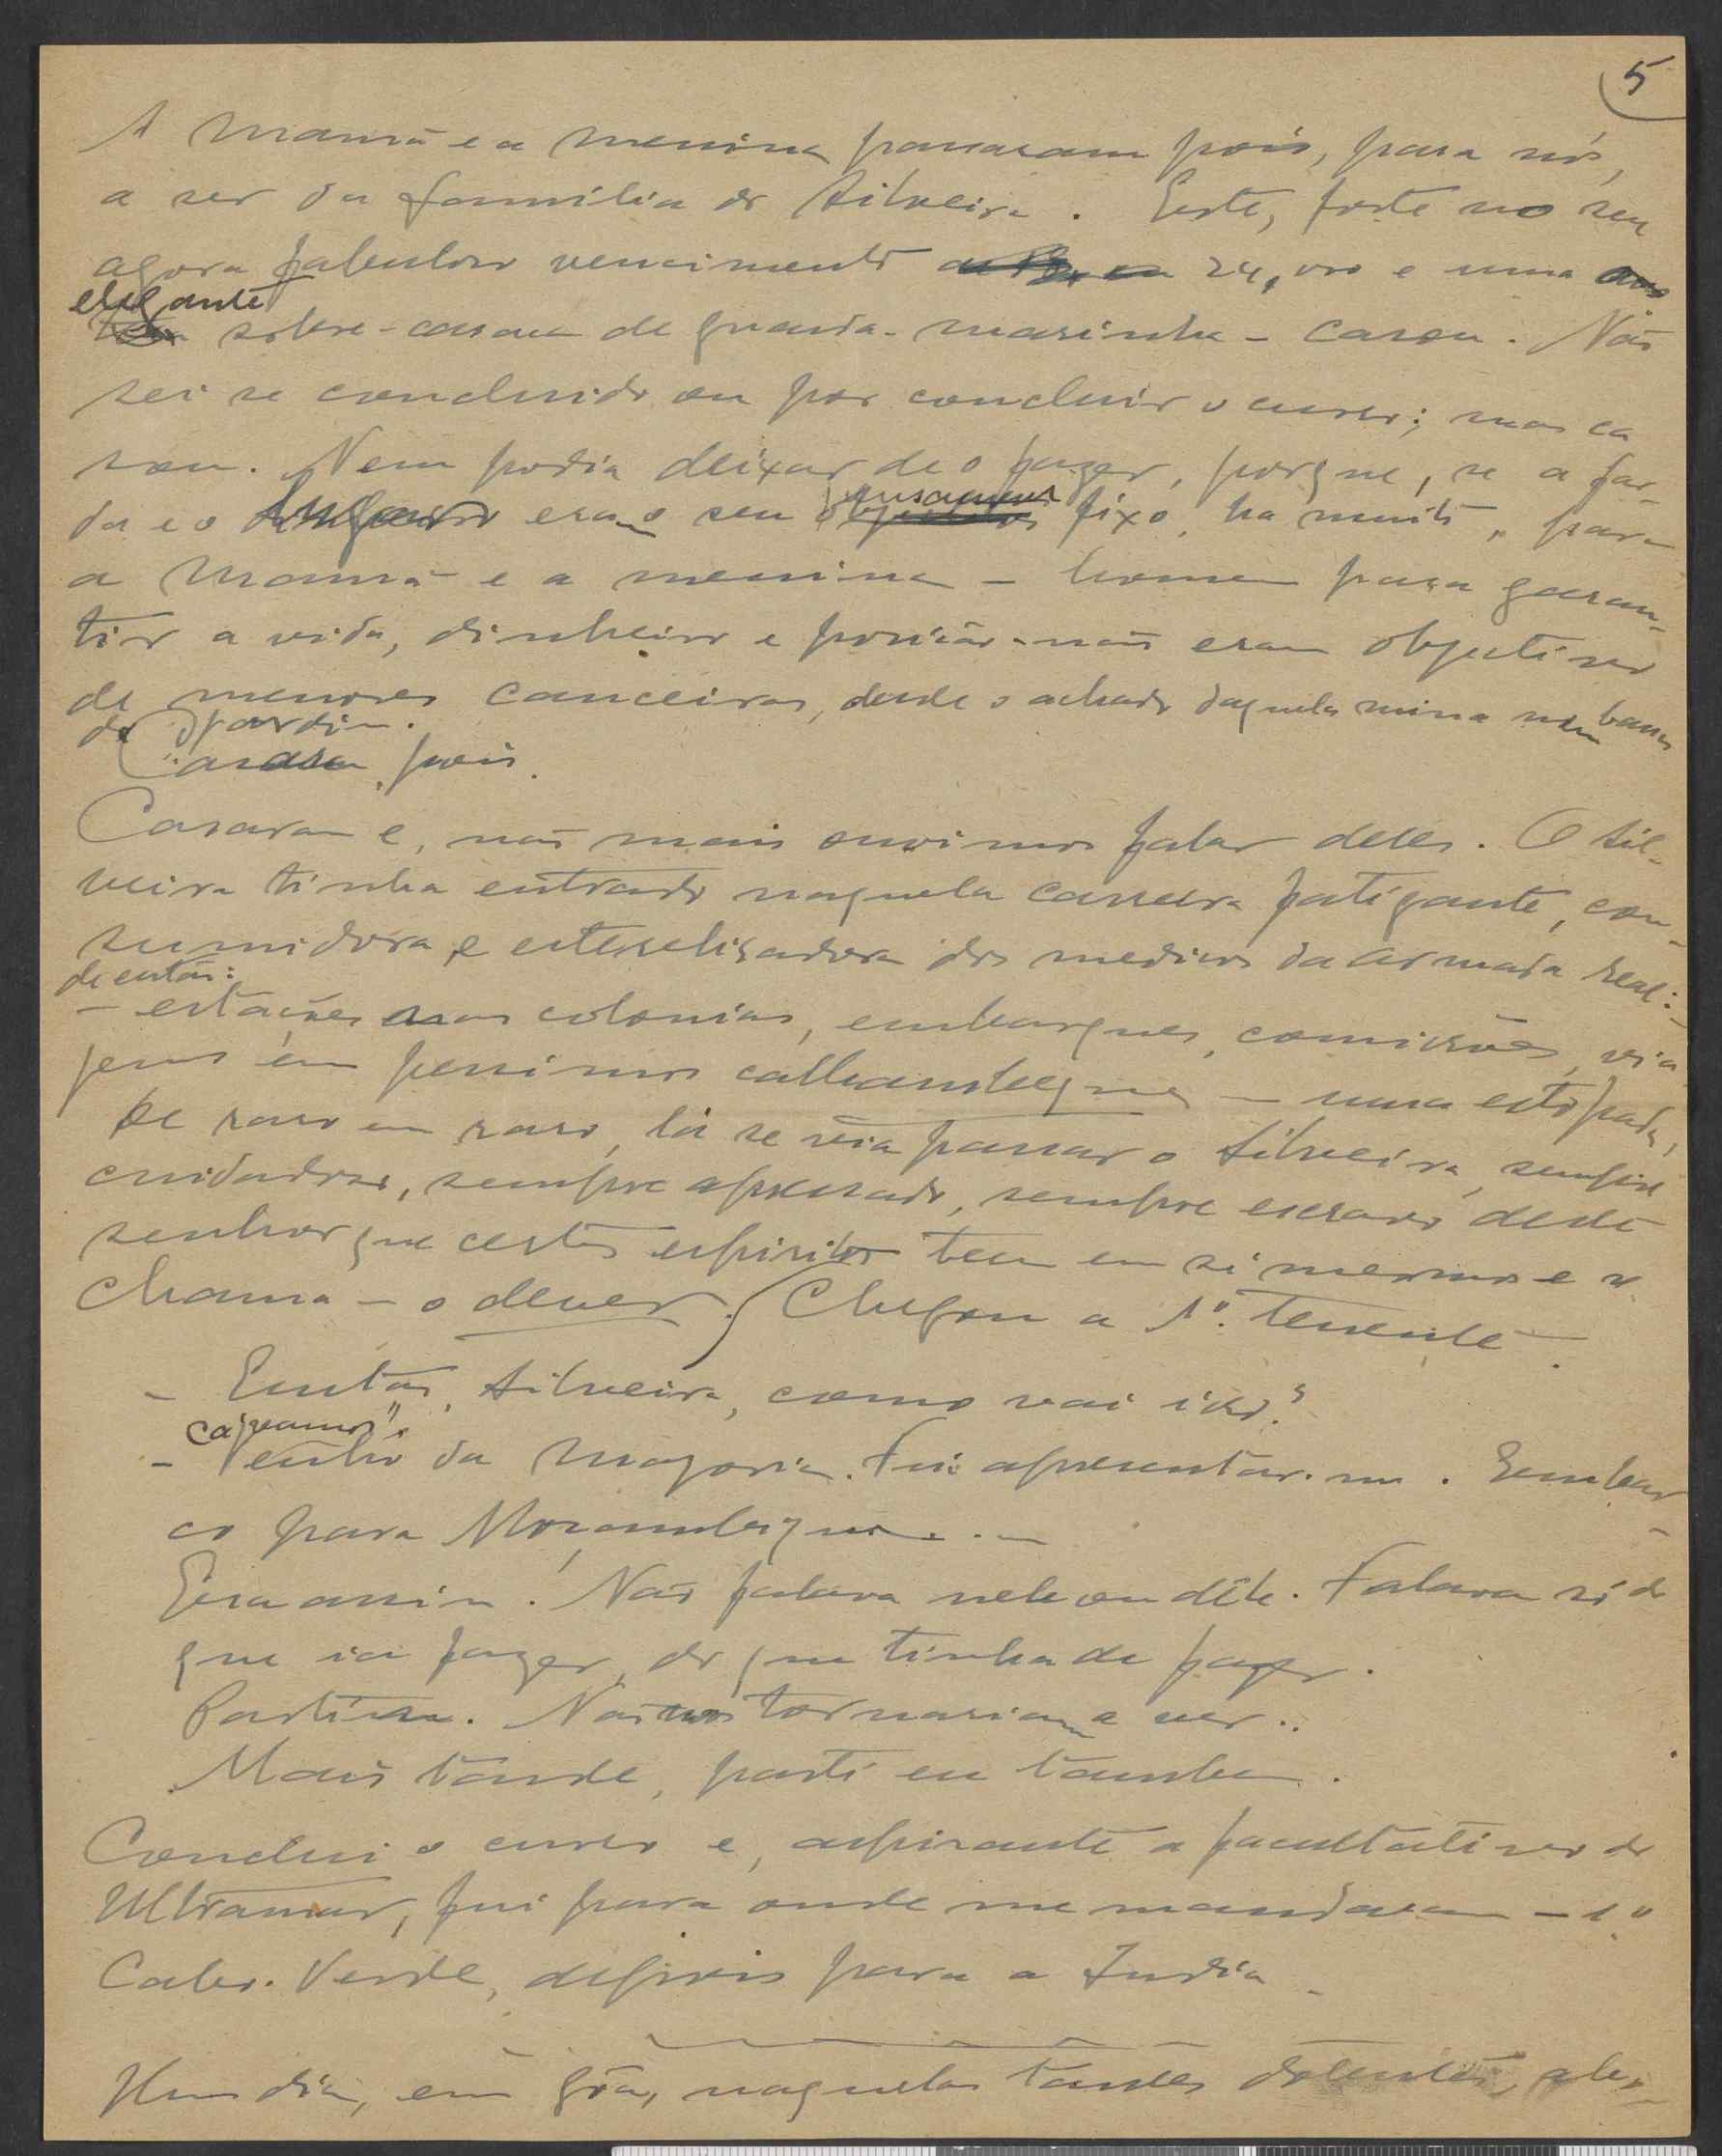 5
A Mamã e a menina passaram pois, para nós,
a ser da familia do Silveira. Este, forte no seu
agora fabuloso vencimento 24,000 e uma
elegante
sobre-casaca de guarda-marinha - casou. Não
sei se concluido ou por concluir o curso; mas ca
sou. Nem podia deixar de o fazer, porque, se a far-
da e o eram o seu pensamento fixo, ha muito, para
a Mamã e a menina - homem para garan-
tir a vida, dinheiro e posição - não eram objectivos
de menores canceiras, desde o achado daquela mina num banco
do jardim.
Casara pois.
Casaram e, não mais ouvimos falar deles. O Sil-
veira tinha entrado naquela carreira fatigante, con-
sumidora, e esterelisadora dos medicos da Armada real:
de então:
- estações nas colonias, embarques, comissões, via
gens em pessimos calhambeques - uma estopada,
De raro em raro, lá se via passar o Silveira, sempre
cuidadoso, sempre apressado, sempre escravo deste
senhor que certos espiritos teem em si mesmos e se
chama - o dever. Chegou a 1º. Tenente.
- Então, Silveira, como vai isso?
- Venho da Majoria. Fui apresentar-me. Embar-
co para Moçambique...
Era assim! Não falava nele ou dêle. Falava só do
que ia fazer, do que tinha de fazer.
Partira. Não nos tornariamos a ver..
Mais tarde, parti eu tambem.
Conclui o curso e, aspirante a facultativo do
Ultramar, fui para onde me mandaram - 1º
Cabo-Verde, depois para a India.
Um dia, em Gôa, naquelas tardes